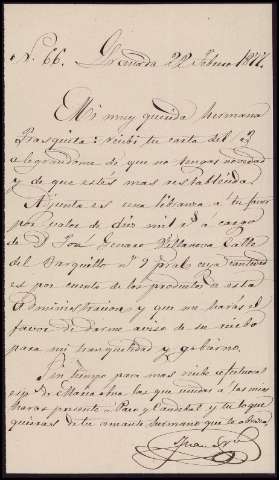 N. 66. Granada 22 Febrero 1877.
Mi muy querida hermana
Frasquita: recibi tu carta del
alegrandome de que no tengas novedad
y de que estés mas restablecida.
Adjunta es una libranza a tu favor
por valor de diez mil rs á cargo
de D. José Genaro Villanova Calle
del Barquillo nº 9 pral cuya cantidad
es por cuenta de los productos de esta
Administracion y que me harás el
favor de darme aviso de su recibo
para mi tranquilidad y gobierno.
Sin tiempo para mas mil
esp. de Maria Ana las que uniras a las mias
haras presente a Paco y Candida y tu lo que
quieras de tu amante hermano que te adora